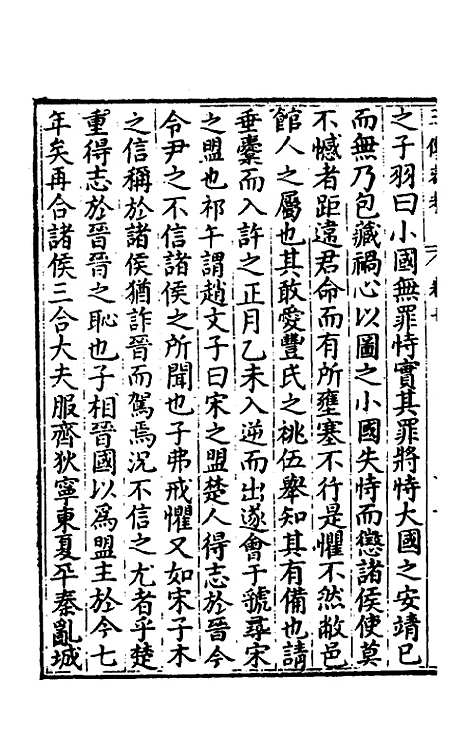 之子羽曰小國無罪恃實其罪將恃大國之安靖己
而無乃包藏禍心以圖之小國失恃而懲諸侯使莫
不憾者距違君命而有所壅塞不行是懼不然敝邑
館人之屬也其敢愛豐氏之祧伍舉知其有備也請
垂櫜而入許之正月乙未入逆而出遂會于虢尋宋
之盟也祁午謂趙文子曰宋之盟楚人得志於晉今
令尹之不信諸侯之所聞也子弗戒懼又如宋子木
之信稱於諸侯猶詐晉而駕焉況不信之尤者乎楚
重得志於晉晉之恥也子相晉國以為盟主於今七
年矣再合諸侯三合大夫服齊狄寧東夏平秦亂城